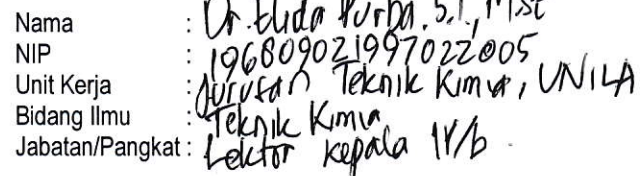 Nama : Dr. Elida Purba, S.T., M.Sc
NIP : 196809021997022005
Unit Kerja : Jurusan Teknik Kimia, UNILA
Bidang Ilmu : Teknik Kimia
Jabatan/Pangkat : Lektor Kepala IV/b